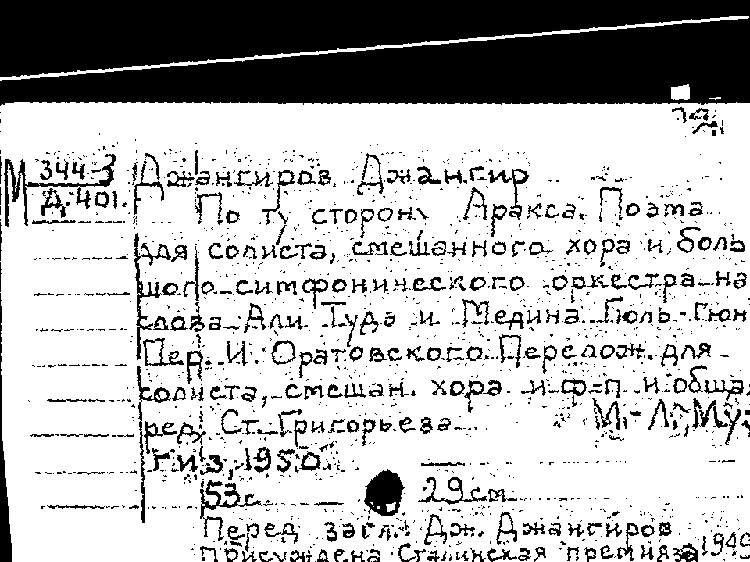 М 344-3
Д-401.
Джангиров Джангир
По ту сторону Аракса. Поэма
для солиста, смешанного хора и боль
шого симфонического оркестра на
слова Али Туде и Медина Гюль-Гюн
Пер. И. Оратовского. Перелож. для
солиста, смешан. хора и ф-п и общая
ред. Ст. Григорьева М.-Л., Муз
гиз, 1950.
53с. 29см.
Перед загл.: Дж. Джангиров
Присуждена Сталинская премия за 1949